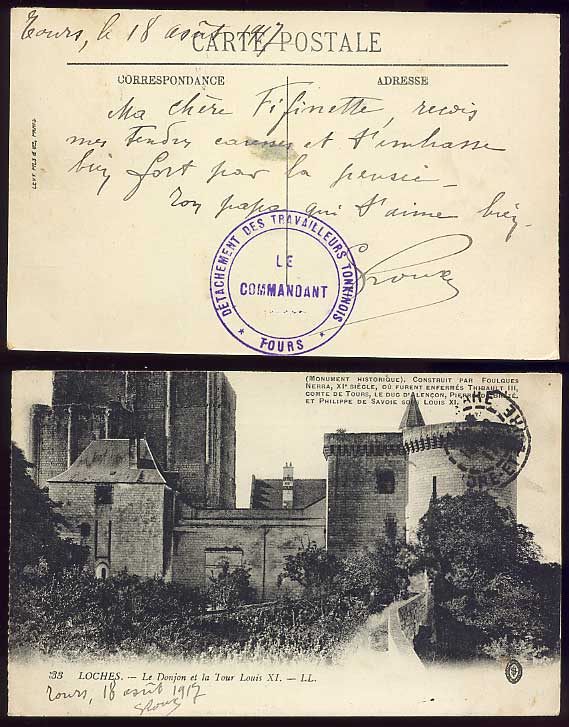 Tours, le 18 août 1917
CARTE POSTALE
CORRESPONDANCE
ADRESSE
LEVY FILS & CIE, PARIS
Ma chère Fifinette, reçois
mes tendres caresses et t'embrasse
bien fort par la pensée_
Ton papa qui t'aime bien.
DÉTACHEMENT DES TRAVAILLEURS TONKINOIS
LE
COMMANDANT
* TOURS *
(MONUMENT HISTORIQUE). CONSTRUIT PAR FOULQUES
NERRA, XIe SIÈCLE, OÙ FURENT ENFERMÉS THIBAULT III,
COMTE DE TOURS, LE DUC D'ALENÇON, PIERRE DE BRÉZÉ,
ET PHILIPPE DE SAVOIE SOUS LOUIS XI.
33 LOCHES. - Le Donjon et la Tour Louis XI. - LL.
Tours, 18 août 1917